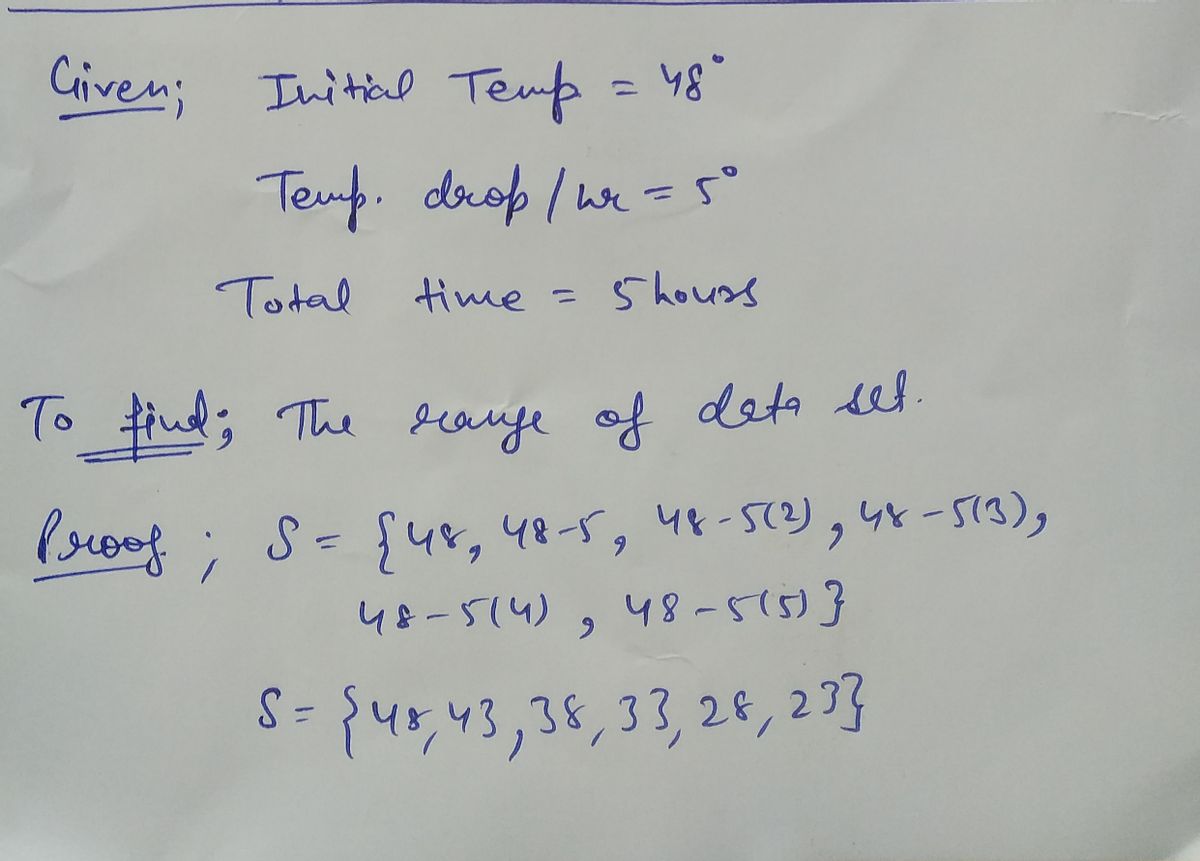 Given; Initial Temp = 48°
Temp. drop / hr = 5°
Total time = 5 hours
To find; The range of data set.
Proof ; S = {48, 48-5, 48-5(2), 48-5(3),
48-5(4) , 48-5(5)}
S = {48, 43, 38, 33, 28, 23}